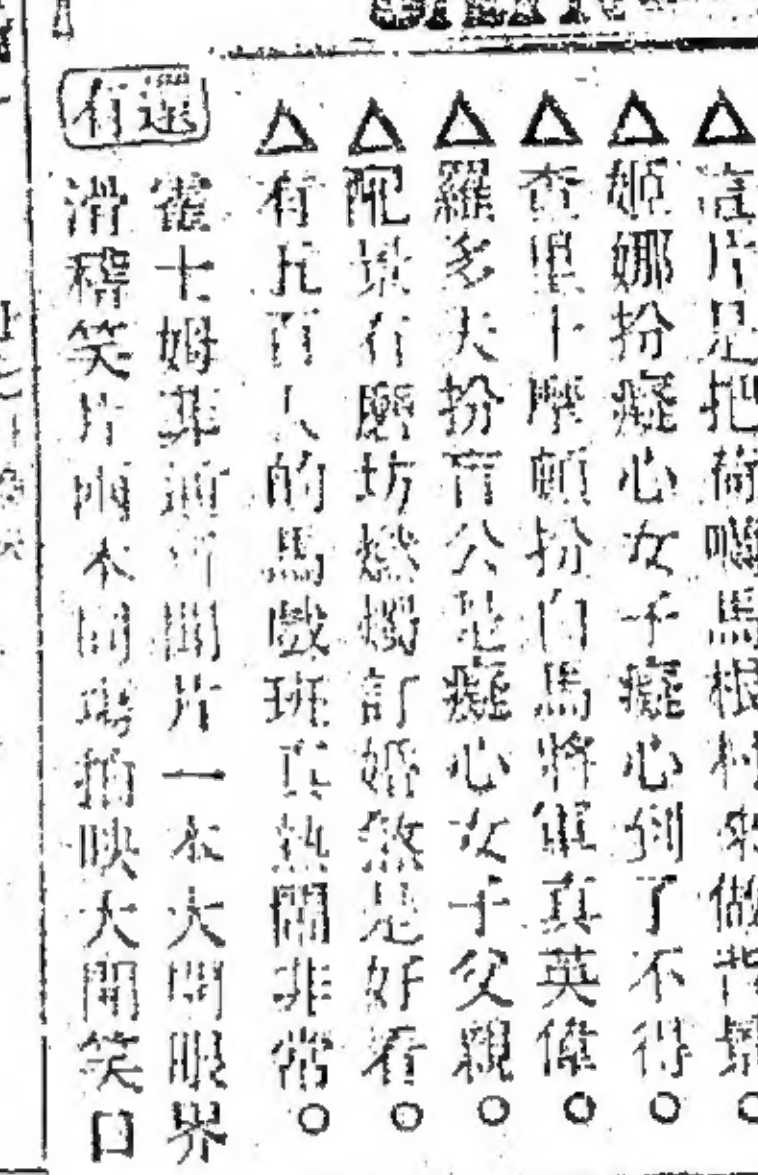 △這片是把荷囒馬根村來做背景○
△姬娜扮癡心女子癡心到了不得○
△查里卜摩頓扮白馬將軍真英偉○
△羅多夫扮盲公是癡心女子父親○
△配景有磨坊燃燭訂婚煞是好看○
△有几百人的馬戲班真熱鬧非常○
還有
霍士姆非通新聞片一本大開眼界
滑稽笑片兩本同場拍映大開笑口